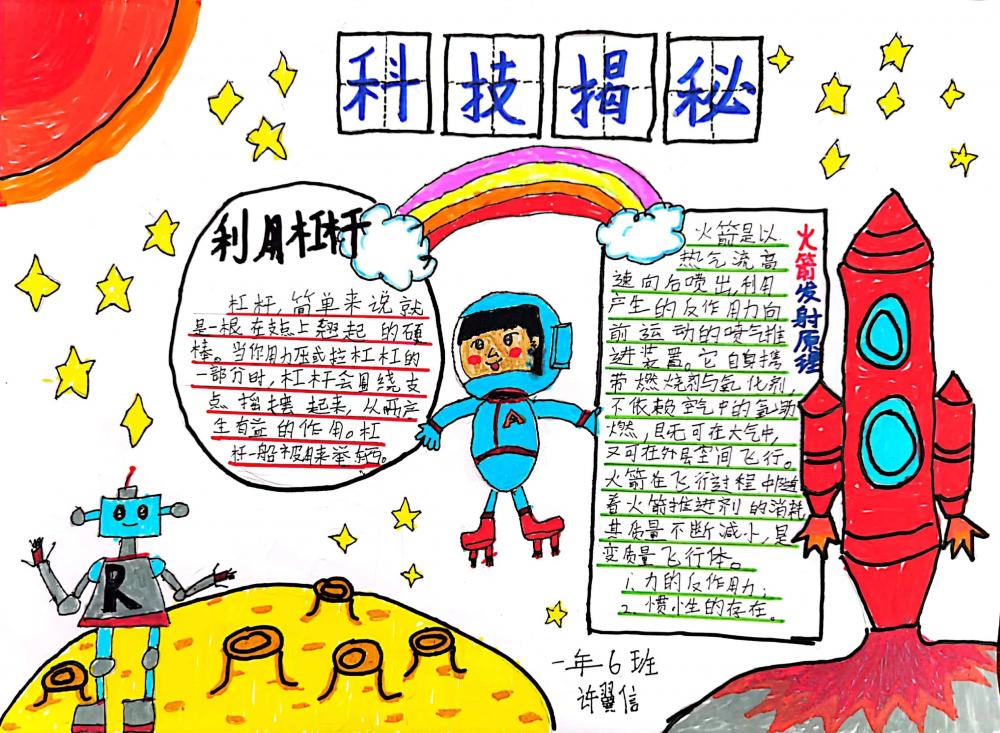 科技揭秘
利用杠杆
杠杆,简单来说就
是一根在支点上翘起的硬
棒。当你用力压或拉杠杠的
一部分时,杠杆会围绕支
点摇摆起来,从而产
生有益的作用。杠
杆一般被用来举
火箭发射原理
火箭是以
热气流高
速向后喷出,利用
产生的反作用力向
前运动的喷气推
进装置。它自身携
带燃烧剂与氧化剂,
不依赖空气中的氧助
燃,且无可在大气中,
又可在外层空间飞行。
火箭在飞行过程中随
着火箭推进剂的消耗
其质量不断减小,是
变质量飞行体。
1.力的反作用力;
2.惯性的存在。
A
R
一年6班
许翼信